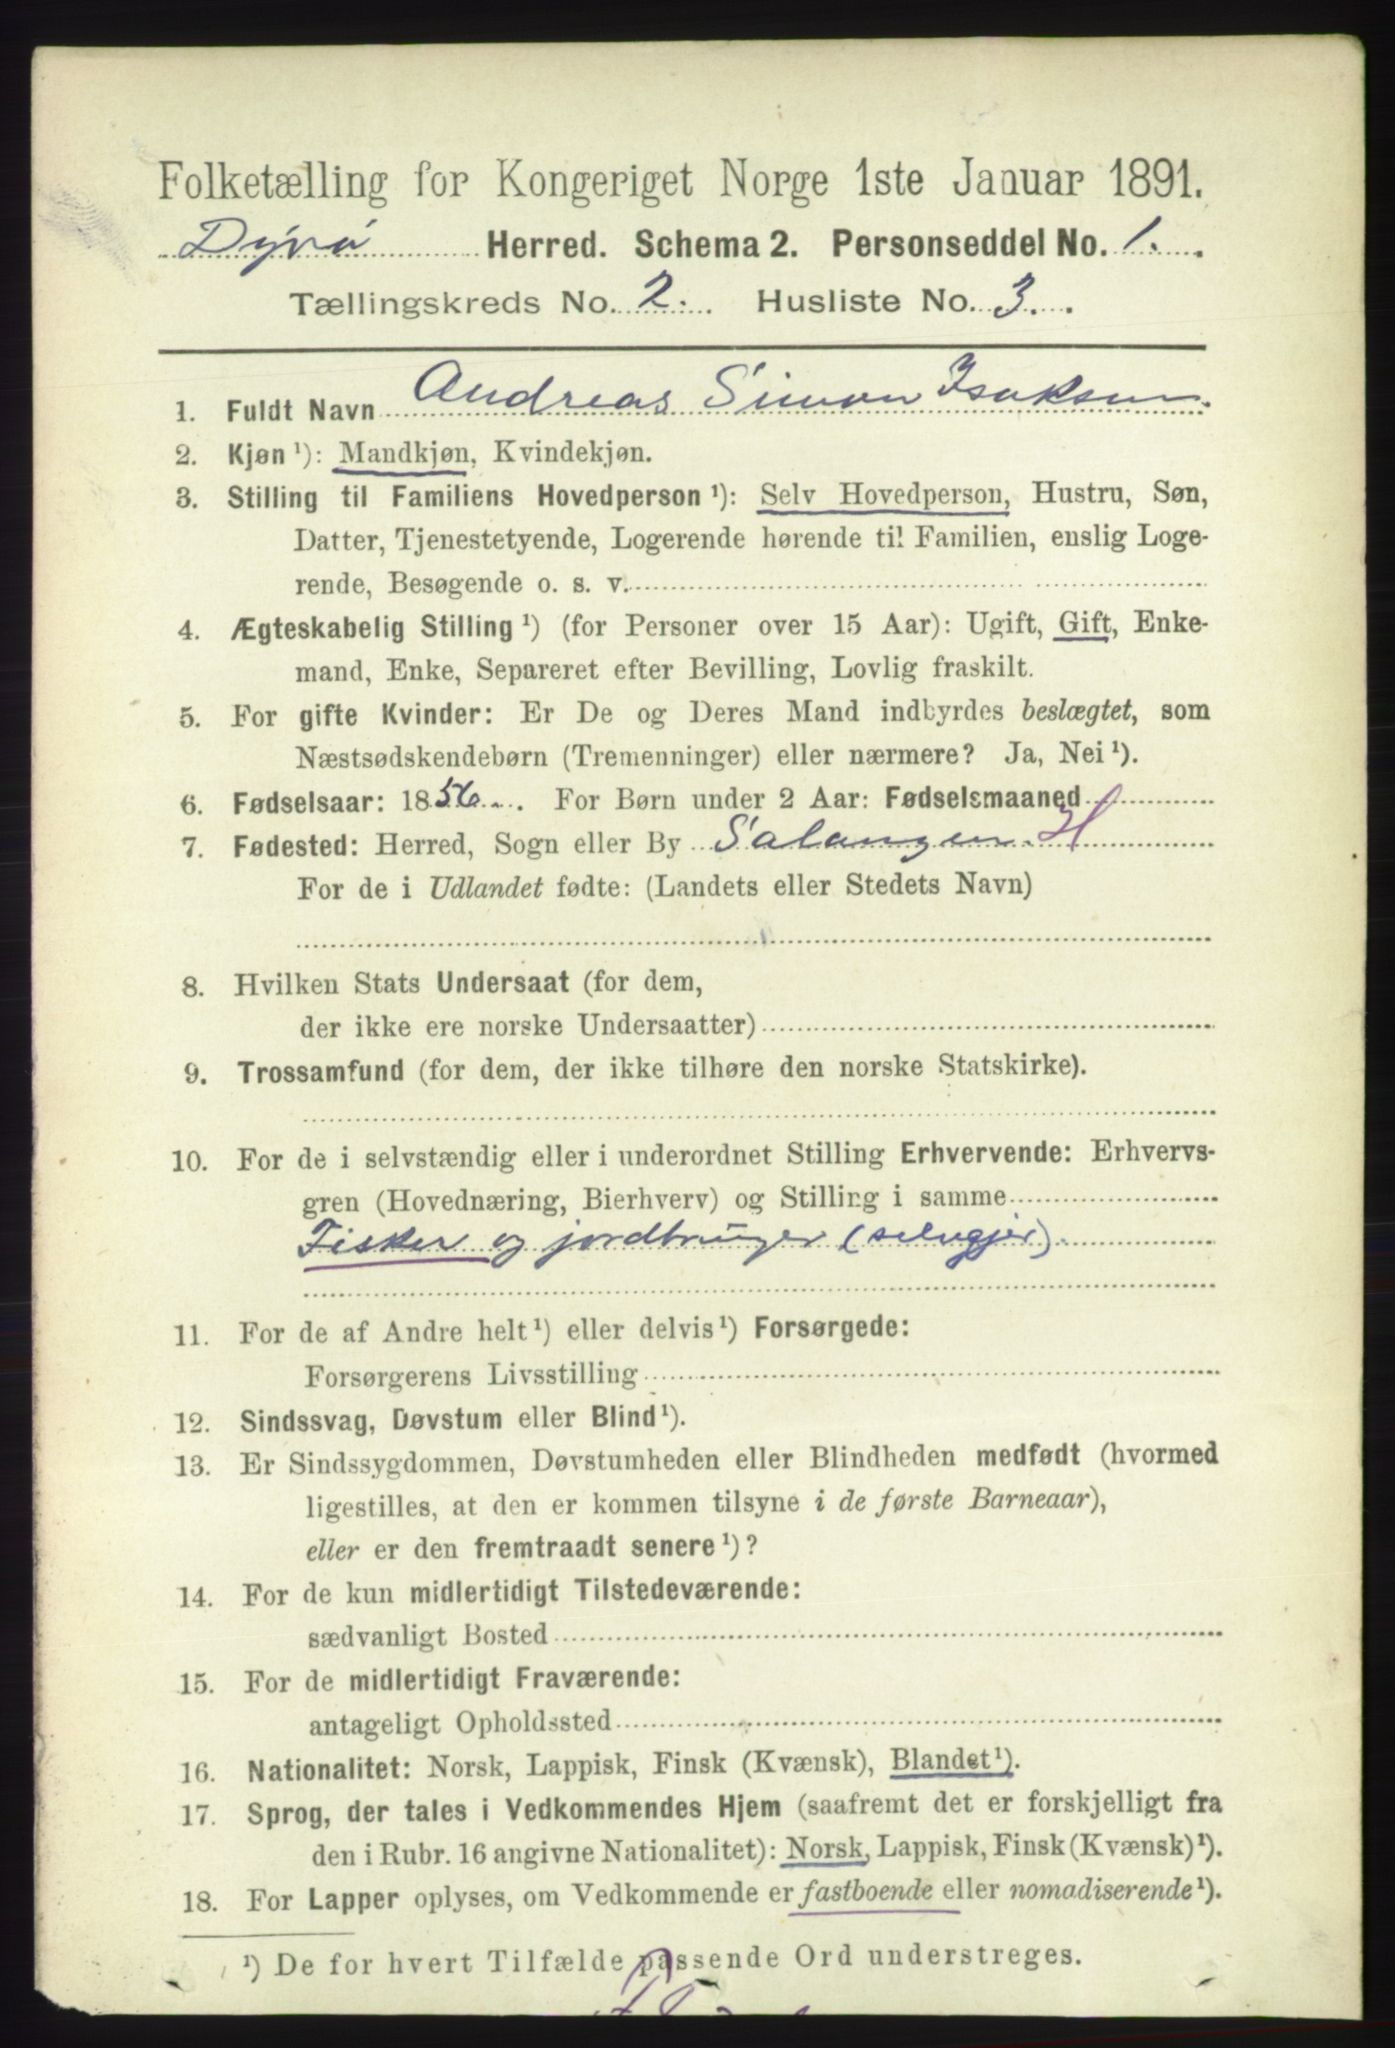 Folketælling for Kongeriget Norge 1ste Januar 1891.
Dyrø Herred. Schema 2. Personseddel No. 1.
Tællingskreds No. 2. Husliste No. 3.
1. Fuldt Navn Andreas Simon Isaksen
2. Kjøn ¹): Mandkjøn, Kvindekjøn.
3. Stilling til Familiens Hovedperson ¹): Selv Hovedperson, Hustru, Søn,
Datter, Tjenestetyende, Logerende hørende til Familien, enslig Loge-
rende, Besøgende o. s. v.
4. Ægteskabelig Stilling ¹) (for Personer over 15 Aar): Ugift, Gift, Enke-
mand, Enke, Separeret efter Bevilling, Lovlig fraskilt.
5. For gifte Kvinder: Er De og Deres Mand indbyrdes beslægtet, som
Næstsødskendebørn (Tremenninger) eller nærmere? Ja, Nei ¹).
6. Fødselsaar: 1856. For Børn under 2 Aar: Fødselsmaaned
7. Fødested: Herred, Sogn eller By Salangen. H
For de i Udlandet fødte: (Landets eller Stedets Navn)
8. Hvilken Stats Undersaat (for dem,
der ikke ere norske Undersaatter)
9. Trossamfund (for dem, der ikke tilhøre den norske Statskirke).
10. For de i selvstændig eller i underordnet Stilling Erhvervende: Erhvervs-
gren (Hovednæring, Bierhverv) og Stilling i samme
Fisker og jordbruger (selvejer).
11. For de af Andre helt ¹) eller delvis ¹) Forsørgede:
Forsørgerens Livsstilling
12. Sindssvag, Døvstum eller Blind ¹).
13. Er Sindssygdommen, Døvstumheden eller Blindheden medfødt (hvormed
ligestilles, at den er kommen tilsyne i de første Barneaar),
eller er den fremtraadt senere ¹)?
14. For de kun midlertidigt Tilstedeværende:
sædvanligt Bosted
15. For de midlertidigt Fraværende:
antageligt Opholdssted
16. Nationalitet: Norsk, Lappisk, Finsk (Kvænsk), Blandet ¹).
17. Sprog, der tales i Vedkommendes Hjem (saafremt det er forskjelligt fra
den i Rubr. 16 angivne Nationalitet): Norsk, Lappisk, Finsk (Kvænsk) ¹).
18. For Lapper oplyses, om Vedkommende er fastboende eller nomadiserende ¹).
¹) De for hvert Tilfælde passende Ord understreges.